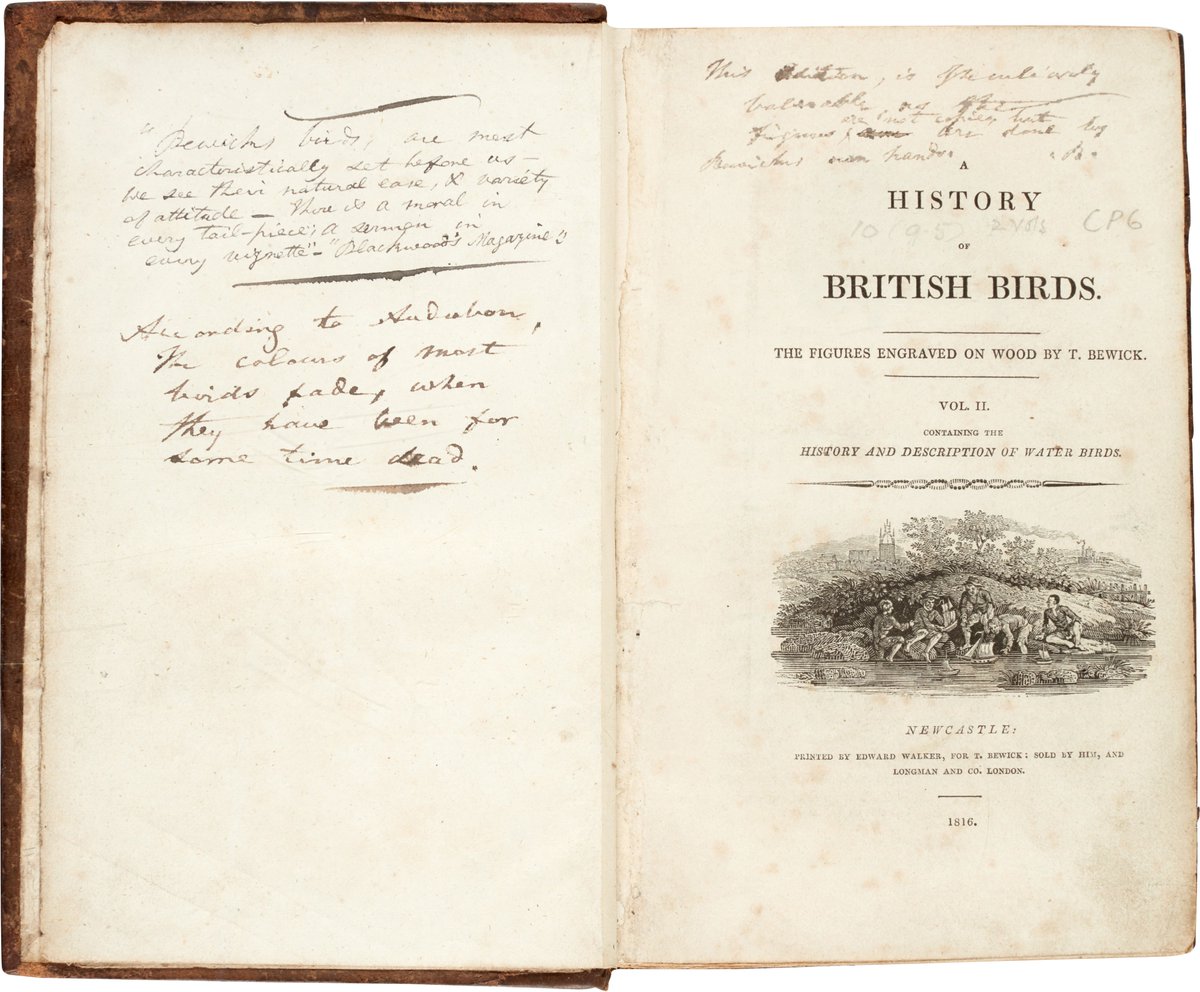 "Bewicks birds, are most
characteristically set before us —
we see their natural ease, & variety
of attitude — There is a moral in
every tail-piece; a sermon in
every vignette" — "Blackwood's Magazine"
According to Audubon,
The colours of most
birds fade, when
they have been for
some time dead.
This Edition, is peculiarly
valuable, as the
are not copies, but
Figures, are done by
Bewicks own hands. . B .
A
HISTORY
10/95 2 Vols CP6
OF
BRITISH BIRDS.
THE FIGURES ENGRAVED ON WOOD BY T. BEWICK.
VOL. II.
CONTAINING THE
HISTORY AND DESCRIPTION OF WATER BIRDS.
NEWCASTLE:
PRINTED BY EDWARD WALKER, FOR T. BEWICK: SOLD BY HIM, AND
LONGMAN AND CO. LONDON.
1816.